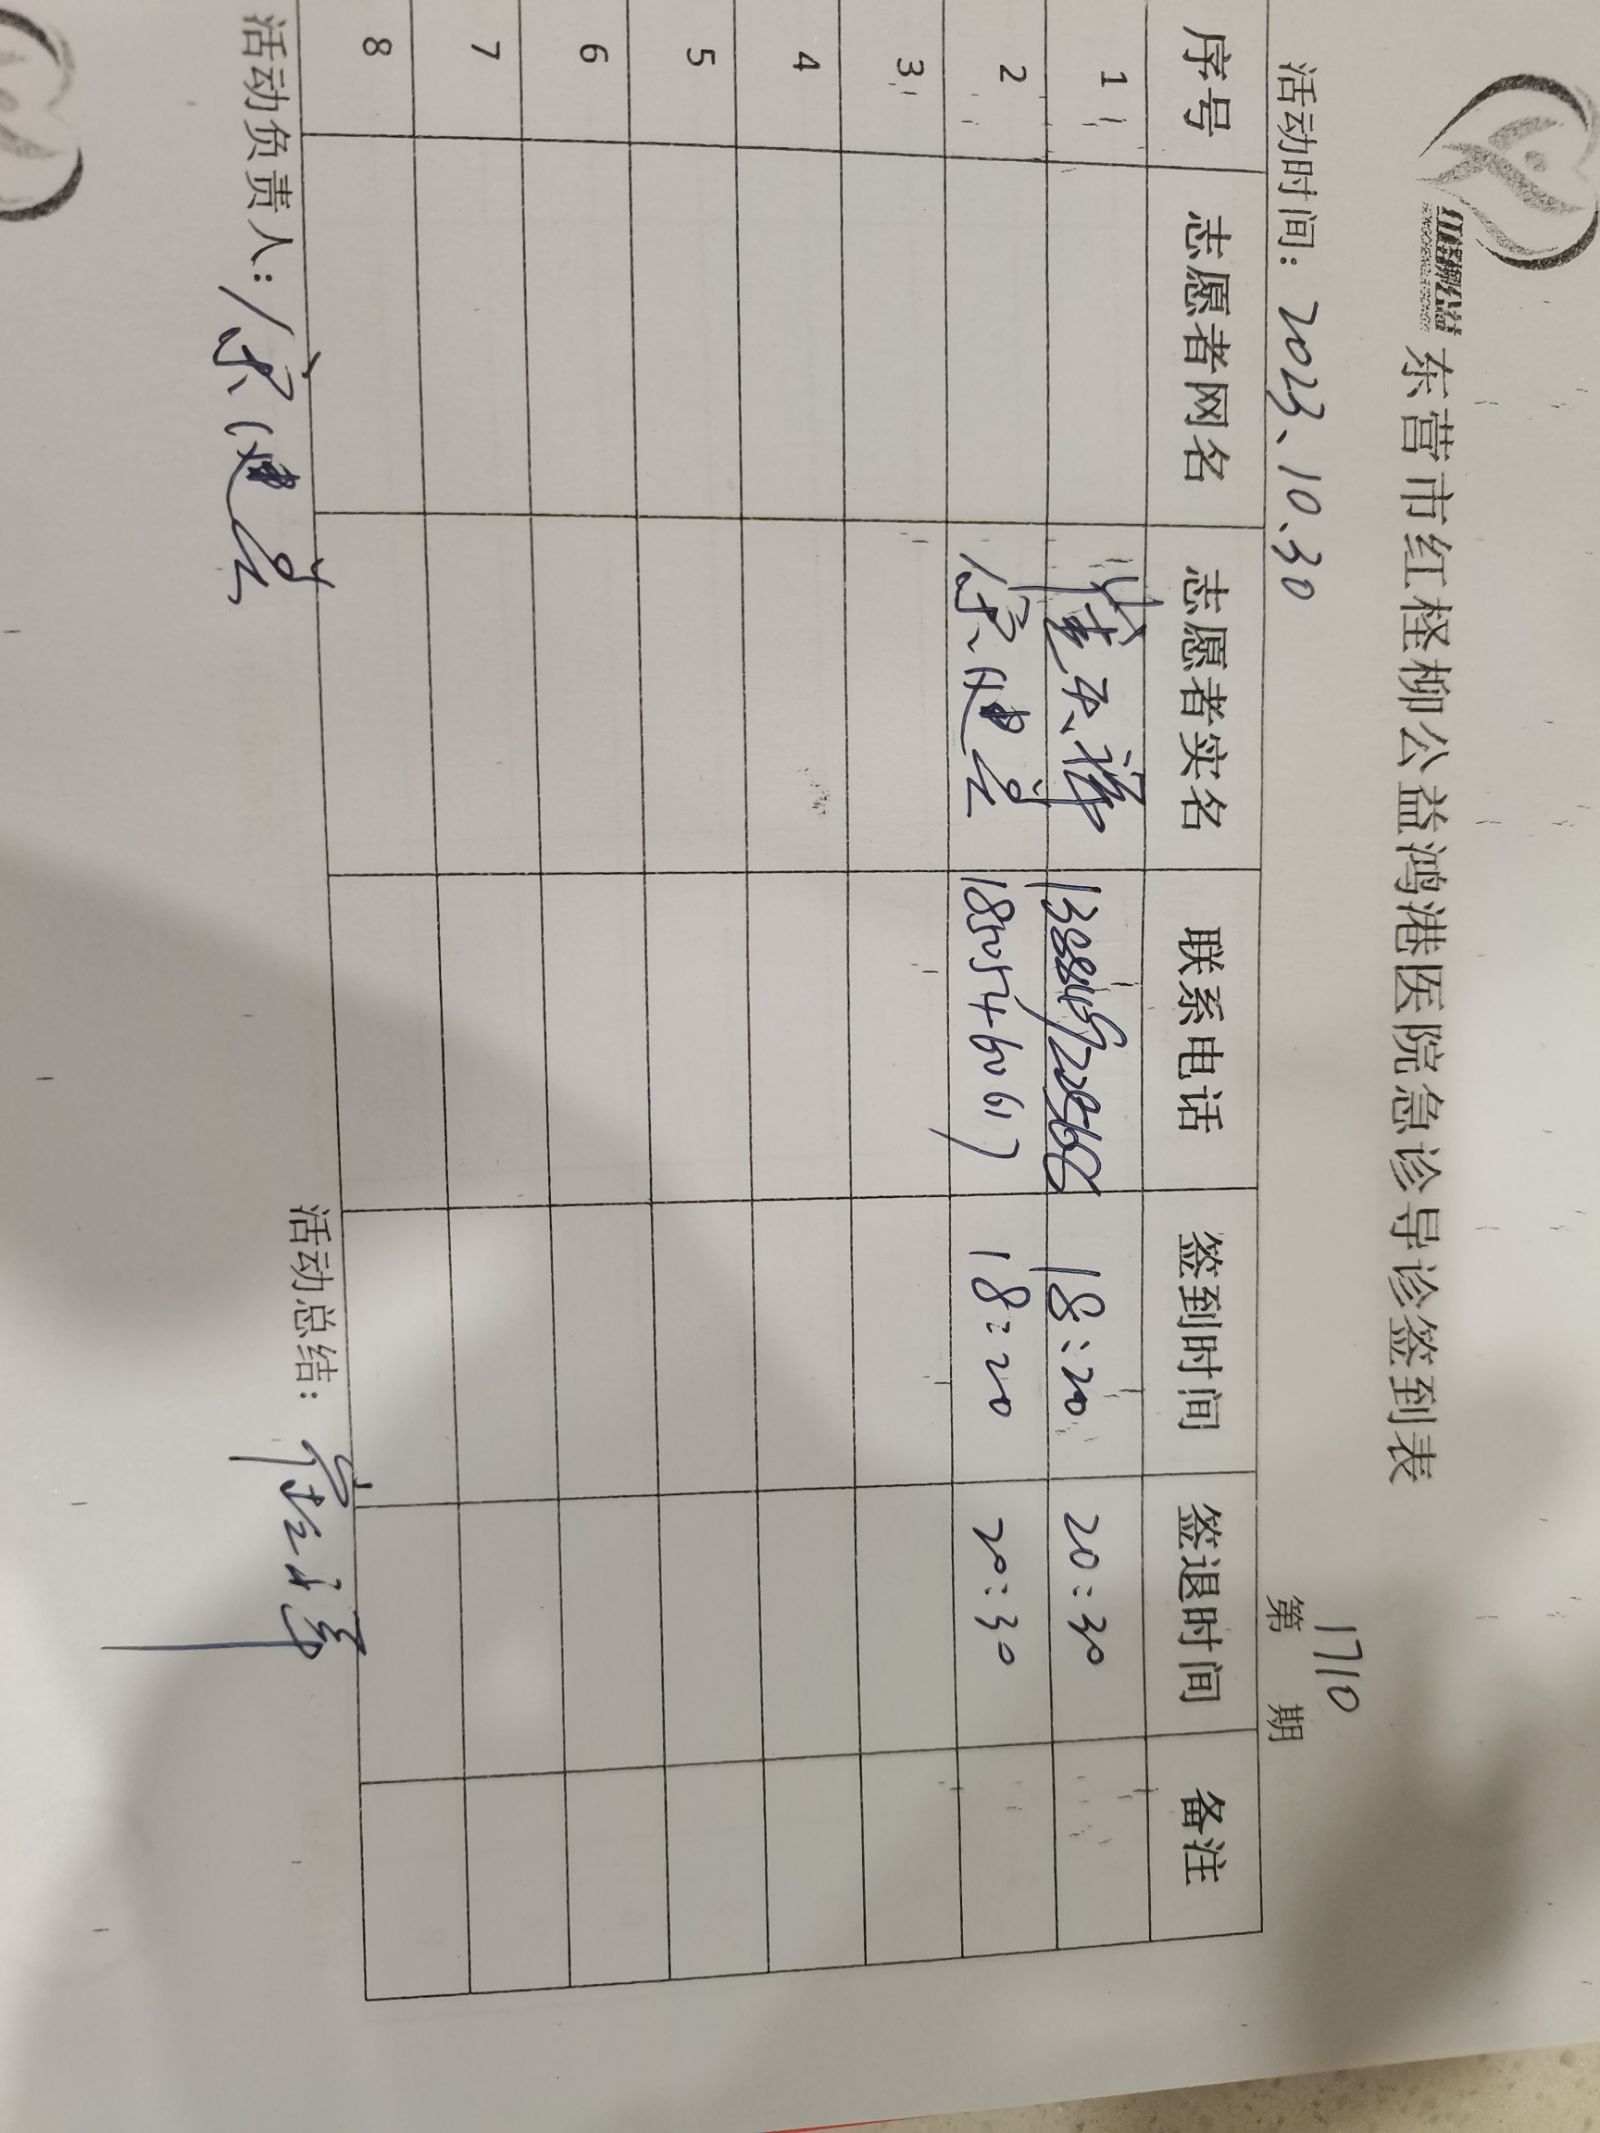 红柽柳公益
东营市红柽柳公益鸿港医院急诊导诊签到表
活动时间：2023、10、30 第1710期
序号 志愿者网名 志愿者实名 联系电话 签到时间 签退时间 备注
1 18:20 20:30
2 18505460617 18:20 20:30
3
4
5
6
7
8
活动负责人： 活动总结：